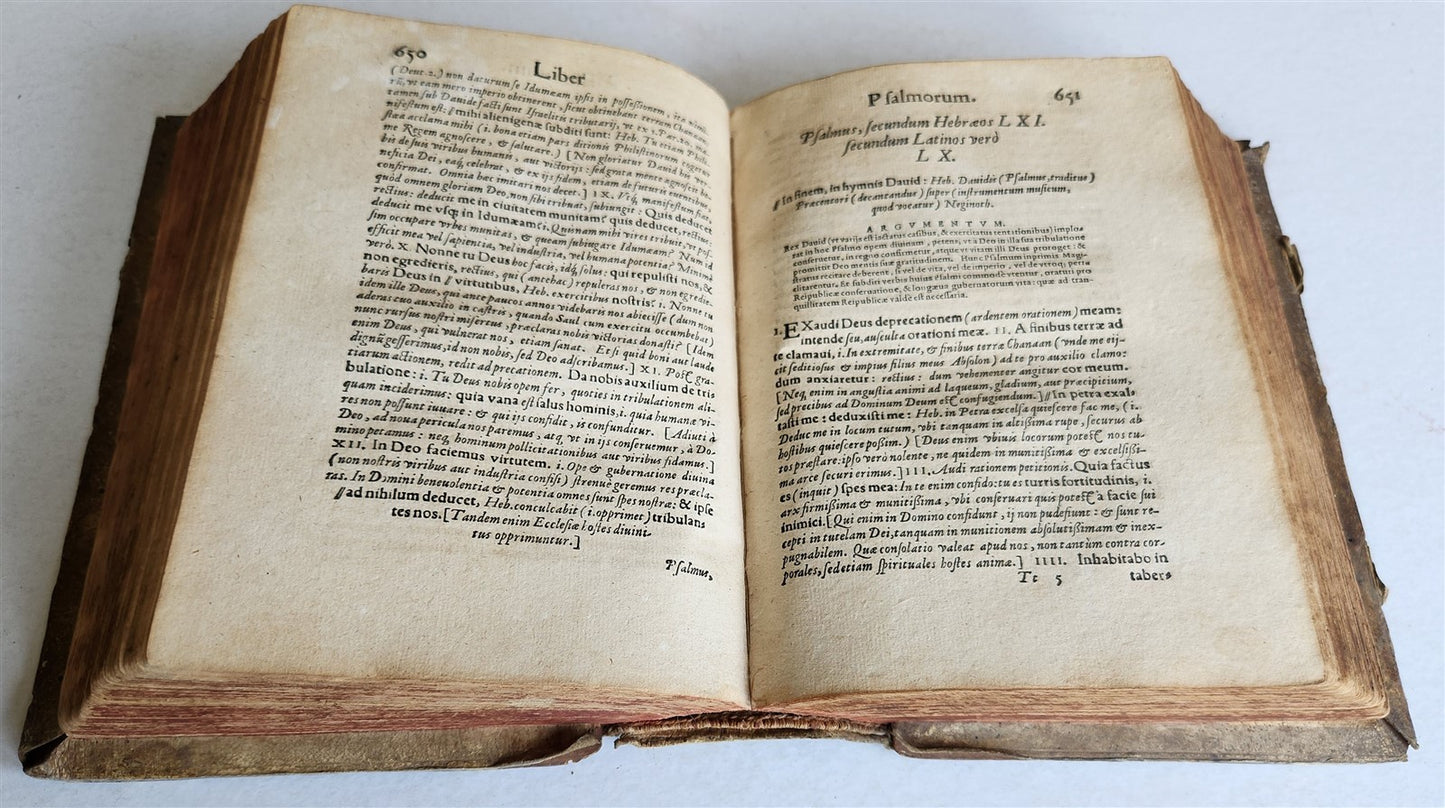 650
Liber
(Deut. 2.) non daturum se Idumæam ipsis in possessionem, ita nimi-
rū, vt eam mero imperio obtinerent, sicut obtinebant terram Chanaan:
tamen sub Dauide facti sunt Israelitis tributarij, vt ex 1. Par. 20. ma-
nifestum est: ∥ mihi alienigenæ subditi sunt: Heb. Tu etiam Phili-
stæa acclama mihi (i. bona etiam pars ditionis Philistinorum cogetur
me Regem agnoscere, & salutare.) [Non gloriatur Dauid his ver-
bis de suis viribus humanis, aut victorijs: sed grata mente agnoscit be-
neficia Dei, eaq́; celebrat, & ex ijs fidem, etiam de futuris euentibus,
confirmat. Omnia hæc imitari nos decet.] IX. Vtq́; manifestum fiat,
quòd omnem gloriam Deo, non sibi tribuat, subiungit: Quis deducet
rectius: deducit me in ciuitatem munitam? quis deducet, rectius:
deducit me vsq́; in Idumæam? i. Quisnam mihi vires tribuit, vt pos-
sim occupare vrbes munitas, & queam subiugare Idumæam? Num id
efficit mea vel sapientia, vel industria, vel humana potentia? Minimè
verò. X. Nonne tu Deus hoc facis, idq́; solus: qui repulisti nos, &
non egredieris, rectius, qui (antehac) repuleras nos, & non egredie-
baris Deus in ∥ virtutibus, Heb. exercitibus nostris? i. Nonne tu
idem ille Deus, qui ante paucos annos videbaris nos abiecisse (dum non
aderas tuo auxilio in castris, quando Saul cum exercitu occumbebat)
nunc rursus nostri misereris, præclaras nobis victorias donasti? [Idem
enim Deus, qui vulnerat nos, etiam sanat. Et si quid boni aut laude
dignū gesserimus, id non nobis, sed Deo adscribamus.] XI. Post gra-
tiarum actionem, redit ad precationem. Da nobis auxilium de tris
bulatione: i. Tu Deus nobis opem fer, quoties in tribulationem ali-
quam inciderimus: quia vana est salus hominis, i. quia humanæ vi-
res non possunt iuuare: & qui ijs confidit, is confunditur. [Adiuti à
Deo, ad noua pericula nos paremus, atq́; vt in ijs conseruemur, à Do-
mino petamus: neq́; hominum pollicitationibus aut viribus fidamus.]
XII. In Deo faciemus virtutem. i. Ope & gubernatione diuina
(non nostris viribus aut industria confisi) strenuè geremus res præcla-
ras. In Domini beneuolentia & potentia omnes sunt spes nostræ: & ipse
∥ ad nihilum deducet, Heb. conculcabit (i. opprimet) tribulans
tes nos. [Tandem enim Ecclesiæ hostes diuini-
tus opprimuntur.]
Psalmus,
Psalmorum.
651
Psalmus, secundum Hebræos LXI.
secundum Latinos verò
LX.
∥ In finem, in hymnis Dauid: Heb. Dauidis (Psalmus, traditus)
Præcentori (decantandus) super (instrumentum musicum,
quod vocatur) Neginoth.
ARGVMENTVM.
Rex Dauid (vt varijs est iactatus casibus, & exercitatus tentationibus) implo-
rat in hoc Psalmo opem diuinam, petens, vt à Deo in illa sua tribulatione
conseruetur, in regno confirmetur, atque vt vitam illi Deus proroget: &
promittit Deo mentis suæ gratitudinem. Hunc Psalmum inprimis Magi-
stratus recitare deberent, si vel de vita, vel de imperio, vel de vtroq; peri-
clitarentur. Et subditi verbis huius Psalmi commodè vtentur, oraturi pro
Reipublicæ conseruatione, & longæua gubernatorum vita: quæ ad tran-
quillitatem Reipublicæ valdè est necessaria.
I. EXaudi Deus deprecationem (ardentem orationem) meam:
intende seu, ausculta orationi meæ. II. A finibus terræ ad
te clamaui, i. In extremitate, & finibus terræ Chanaan (vnde me eij-
cit seditiosus & impius filius meus Absolon) ad te pro auxilio clamo:
dum anxiaretur: rectius: dum vehementer angitur cor meum.
[Neq́; enim in angustia animi ad laqueum, gladium, aut præcipitium,
sed precibus ad Dominum Deum est confugiendum.] ∥ In petra exal-
tasti me: deduxisti me: Heb. in Petra excelsa quiescere fac me, (i.
Deduc me in locum tutum, vbi tanquam in altissima rupe, securus ab
hostibus quiescere possim.) [Deus enim vbiuis locorum potest nos tu-
tos præstare: ipso verò nolente, ne quidem in munitissima & excelsissi-
ma arce securi erimus.] III. Audi rationem petitionis. Quia factus
es (inquit) spes mea: In te enim confido: tu es turris fortitudinis, i.
arx firmissima & munitissima, vbi conseruari quis potest à facie sui
inimici. [Qui enim in Domino confidunt, ij non pudefiunt: & sunt re-
cepti in tutelam Dei, tanquam in munitionem absolutissimam & inex-
pugnabilem. Quæ consolatio valeat apud nos, non tantùm contra cor-
porales, sed etiam spirituales hostes animæ.] IIII. Inhabitabo in
Tt 5
taber-